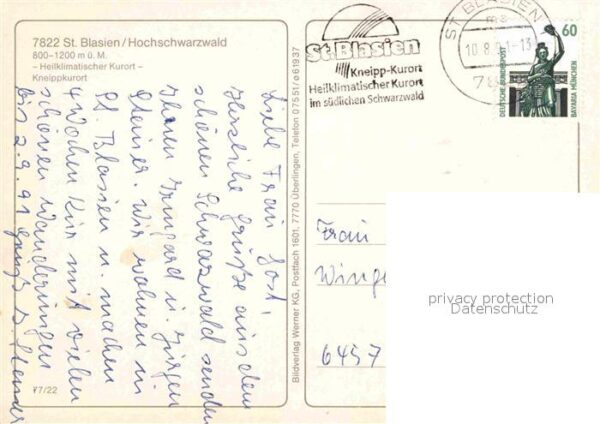 7822 St. Blasien/Hochschwarzwald
800-1200 m ü. M.
- Heilklimatischer Kurort -
Kneippkurort
Liebe Frau Jost,
Herzliche Grüße aus dem
schönen Schwarzwald senden
Ihnen Irmgard u. Jürgen
Steiner. Wir wohnen in
St. Blasien u. machen
4 Wochen Kur mit vielen
schönen Wanderungen
bis 2.9.91
¥7/22
Bildverlag Werner KG, Postfach 1601, 7770 Überlingen, Telefon 07551/e61937
St. Blasien
Kneipp-Kurort
Heilklimatischer Kurort
im südlichen Schwarzwald
ST BLASIEN
10.8.
60
DEUTSCHE BUNDESPOST
BAVARIA MÜNCHEN
Frau
6457
privacy protection
Datenschutz